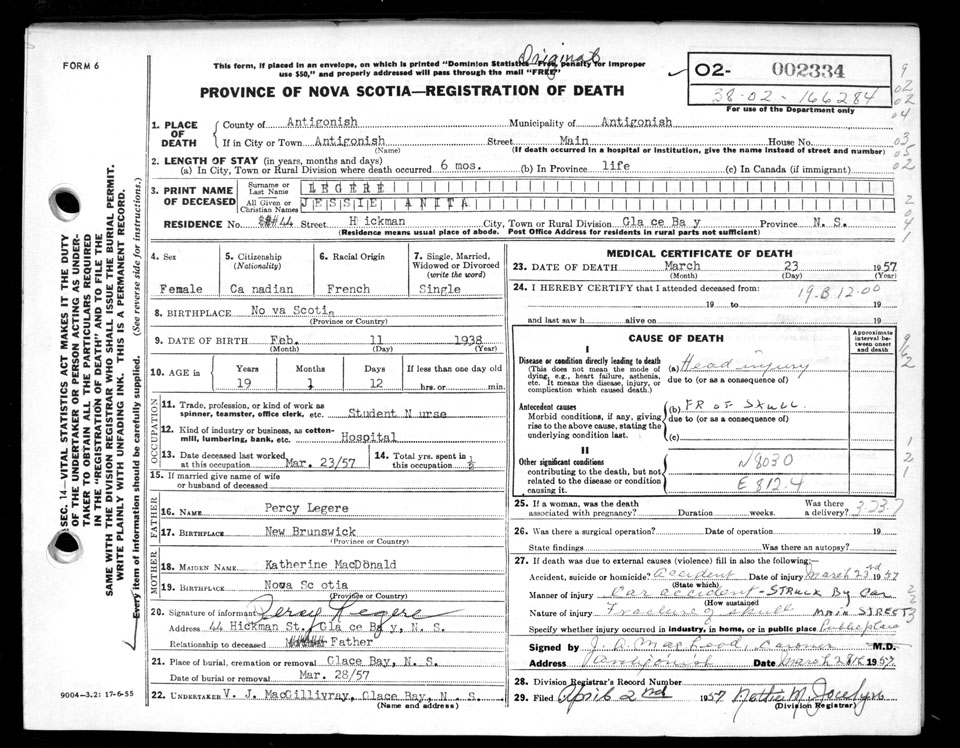 FORM 6
Original
This form, if placed in an envelope, on which is printed "Dominion Statistics—Free, penalty for improper
use $50," and properly addressed will pass through the mail "FREE"
PROVINCE OF NOVA SCOTIA—REGISTRATION OF DEATH
O2- 002334
38-02-166284
For use of the Department only
1. PLACE OF DEATH
County of Antigonish Municipality of Antigonish
If in City or Town Antigonish Street Main House No.
(Name) (If death occurred in a hospital or institution, give the name instead of street and number)
2. LENGTH OF STAY (in years, months and days)
(a) In City, Town or Rural Division where death occurred 6 mos. (b) In Province life (c) In Canada (if immigrant)
3. PRINT NAME OF DECEASED
Surname or Last Name LEGERE
All Given or Christian Names JESSIE ANITA
RESIDENCE No. 44 Street Hickman City, Town or Rural Division Glace Bay Province N. S.
(Residence means usual place of abode. Post Office Address for residents in rural parts not sufficient)
4. Sex
Female
5. Citizenship
(Nationality)
Canadian
6. Racial Origin
French
7. Single, Married,
Widowed or Divorced
(write the word)
Single
8. BIRTHPLACE Nova Scotia
(Province or Country)
9. DATE OF BIRTH Feb. 11 1938
(Month) (Day) (Year)
10. AGE in
Years Months Days If less than one day old
19 1 12 hrs. or min.
OCCUPATION
11. Trade, profession, or kind of work as
spinner, teamster, office clerk, etc. Student Nurse
12. Kind of industry or business, as cotton-
mill, lumbering, bank, etc. Hospital
13. Date deceased last worked
at this occupation Mar. 23/57
14. Total yrs. spent in
this occupation ½
15. If married give name of wife
or husband of deceased
FATHER
16. NAME Percy Legere
17. BIRTHPLACE New Brunswick
(Province or Country)
MOTHER
18. MAIDEN NAME Katherine MacDonald
19. BIRTHPLACE Nova Scotia
(Province or Country)
20. Signature of informant Percy Legere
Address 44 Hickman St. Glace Bay, N. S.
Relationship to deceased Father
21. Place of burial, cremation or removal Glace Bay, N. S.
Date of burial or removal Mar. 28/57
22. UNDERTAKER V. J. MacGillivray, Glace Bay, N. S.
(Name and address)
MEDICAL CERTIFICATE OF DEATH
23. DATE OF DEATH March 23 1957
(Month) (Day) (Year)
24. I HEREBY CERTIFY that I attended deceased from
19-B 12-00
19 to 19
and last saw h alive on 19
CAUSE OF DEATH
Approximate interval between onset and death
I
Disease or condition directly leading to death
(This does not mean the mode of
dying, e.g., heart failure, asthenia,
etc. It means the disease, injury, or
complication which caused death.)
(a) Head injury
due to (or as a consequence of)
Antecedent causes
Morbid conditions, if any, giving
rise to the above cause, stating the
underlying condition last.
(b) FR OF SKULL
due to (or as a consequence of)
(c)
II
Other significant conditions
contributing to the death, but not
related to the disease or condition
causing it.
N8030
E812.4
25. If a woman, was the death
associated with pregnancy? Duration weeks. Was there
a delivery?
26. Was there a surgical operation? Date of operation 19
State findings Was there an autopsy?
27. If death was due to external causes (violence) fill in also the following:
Accident, suicide or homicide? Accident Date of injury March 23rd 1957
(State which)
Manner of injury Car accident - STRUCK By Car
(How sustained)
Nature of injury Fracture of skull MAIN STREET
Specify whether injury occurred in industry, in home, or in public place Public place
Signed by J. A. M.D.
Address Antigonish Date March 28th 1957
28. Division Registrar's Record Number
29. Filed April 2nd 1957 Nettie M. Jocelyn
(Division Registrar)
SEC. 14—VITAL STATISTICS ACT MAKES IT THE DUTY
OF THE UNDERTAKER OR PERSON ACTING AS UNDER-
TAKER TO OBTAIN ALL THE PARTICULARS REQUIRED
IN THE "REGISTRATION OF DEATH" AND TO FILE THE
SAME WITH THE DIVISION REGISTRAR WHO SHALL ISSUE THE BURIAL PERMIT.
WRITE PLAINLY WITH UNFADING INK. THIS IS A PERMANENT RECORD.
Every item of information should be carefully supplied. (See reverse side for instructions.)
9004—3.21 17-6-55